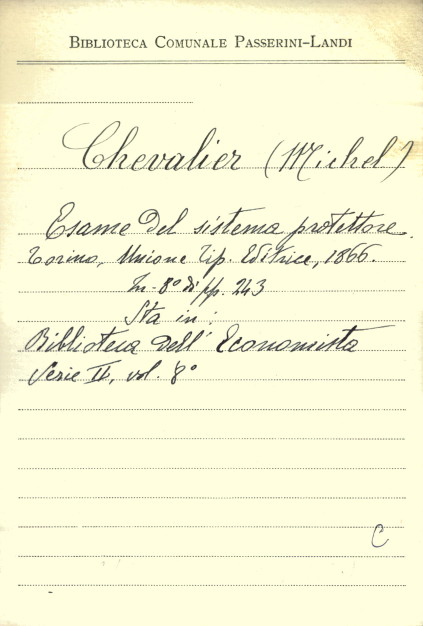 BIBLIOTECA COMUNALE PASSERINI-LANDI
Chevalier (Michel)
Esame del sistema protettore.
Torino, Unione Tip. Editrice, 1866.
In-8° di pp. 243
Sta in:
Biblioteca dell' Economista
Serie II, vol. 8°
C